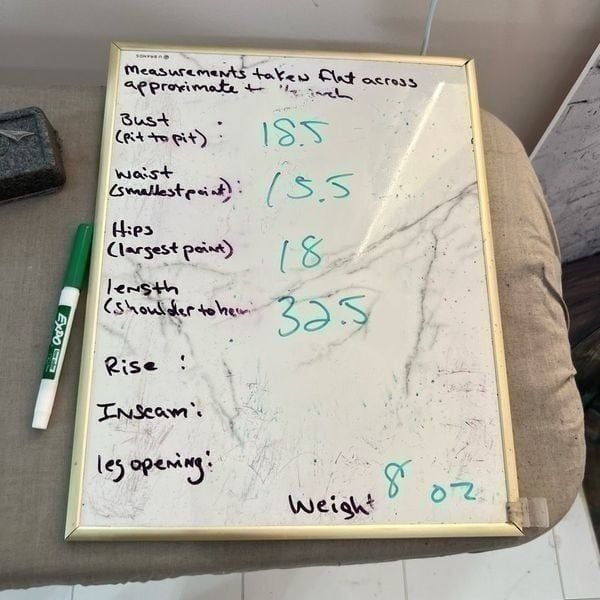 U BRANDS
Measurements taken flat across
approximate + inch
Bust
(pit to pit) : 18.5
Waist
(smallest point): 15.5
Hips
(largest point) 18
length
(shoulder to hem 32.5
Rise :
Inseam:
leg opening:
Weight 8 oz
EXPO